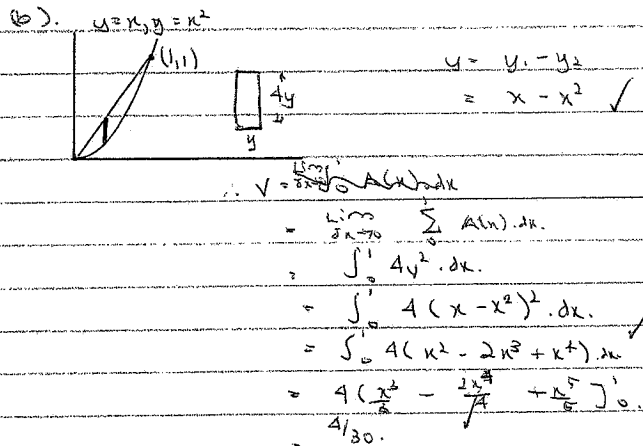 (b). y=x, y=x²
(1,1)
4y
y
y = y₁ - y₂
= x - x² ✓
∴ V = Lim δx→0 ∫₀¹ A(x) dx
= Lim δx→0 Σ₀¹ A(x).dx.
= ∫₀¹ 4y².dx.
= ∫₀¹ 4(x-x²)².dx.
= ∫₀¹ 4(x² - 2x³ + x⁴).dx ✓
= 4(x³/3 - 2x⁴/4 + x⁵/5]₀¹.
= 4/30.